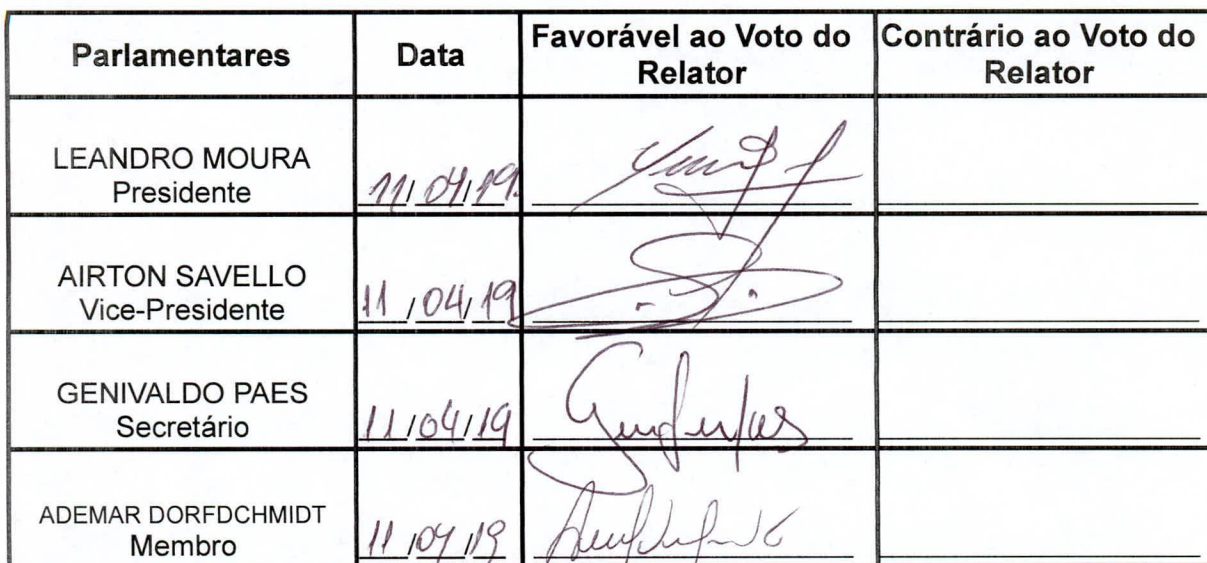 Parlamentares Data Favorável ao Voto do Relator Contrário ao Voto do Relator
LEANDRO MOURA
Presidente 11/04/19
AIRTON SAVELLO
Vice-Presidente 11/04/19
GENIVALDO PAES
Secretário 11/04/19
ADEMAR DORFDCHMIDT
Membro 11/04/19